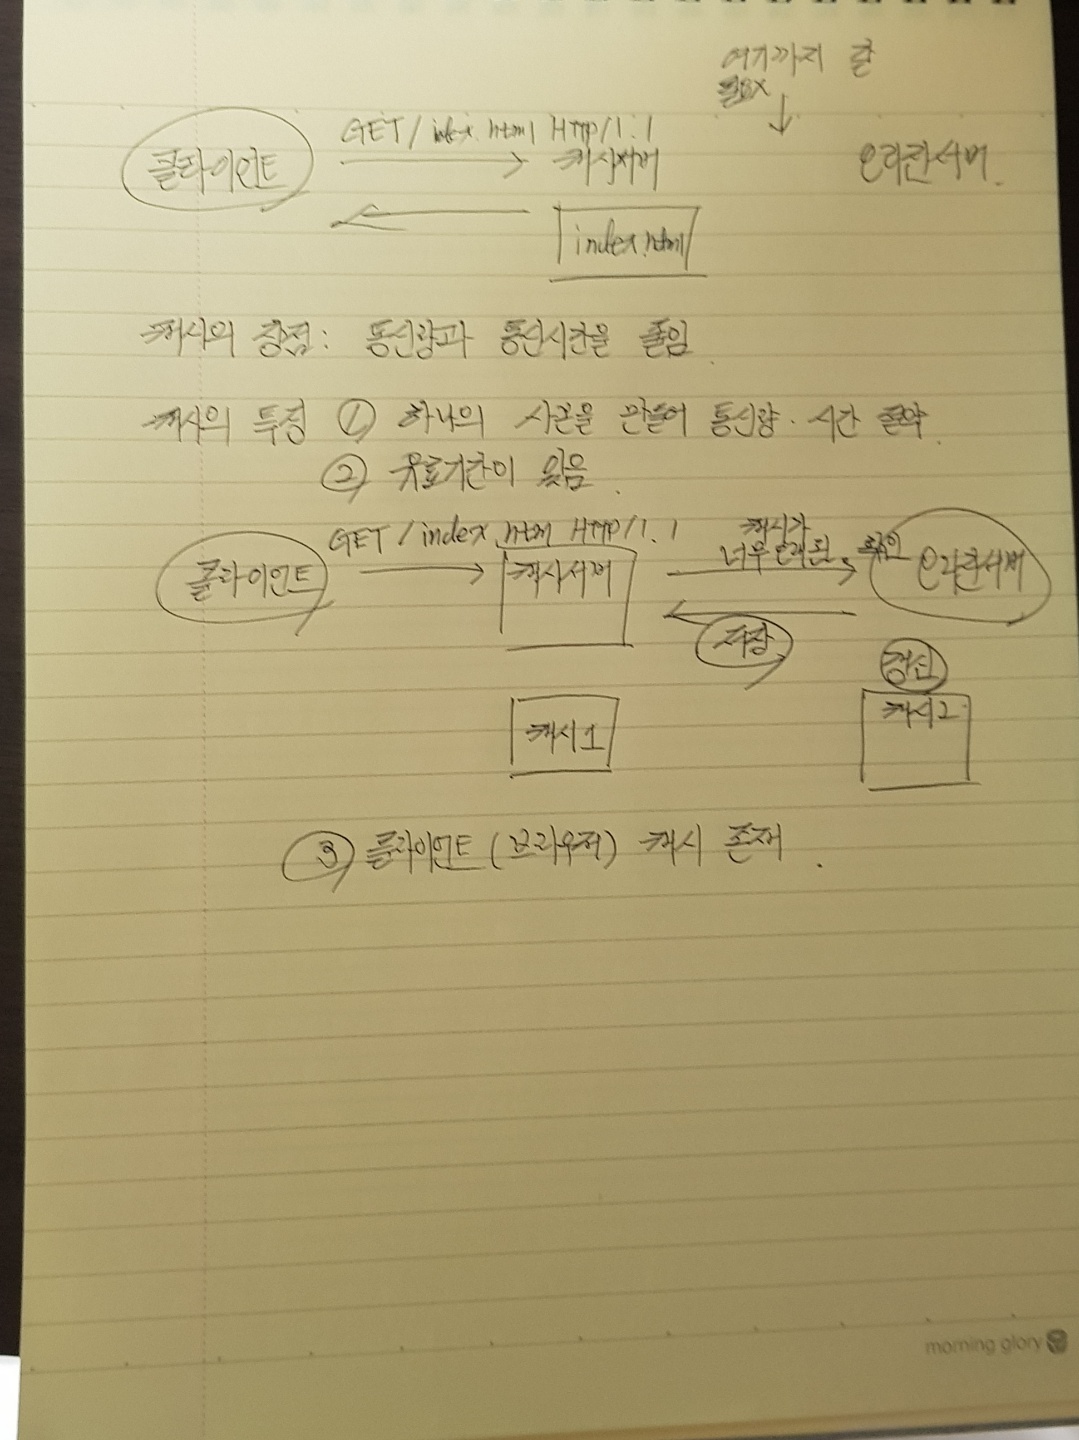 여기까지 갈
필요X
GET / index.html HTTP/1.1
클라이언트 캐시서버 오리진서버.
index.html
캐시의 장점: 통신량과 통신시간을 줄임.
캐시의 특징 ① 하나의 사본을 만들어 통신량·시간 절약.
② 유효기간이 있음.
GET / index.html HTTP/1.1 캐시가
너무 오래된 확인
클라이언트 캐시서버 오리진서버
저장
갱신
캐시1 캐시2
③ 클라이언트(브라우저) 캐시 존재.
morning glory